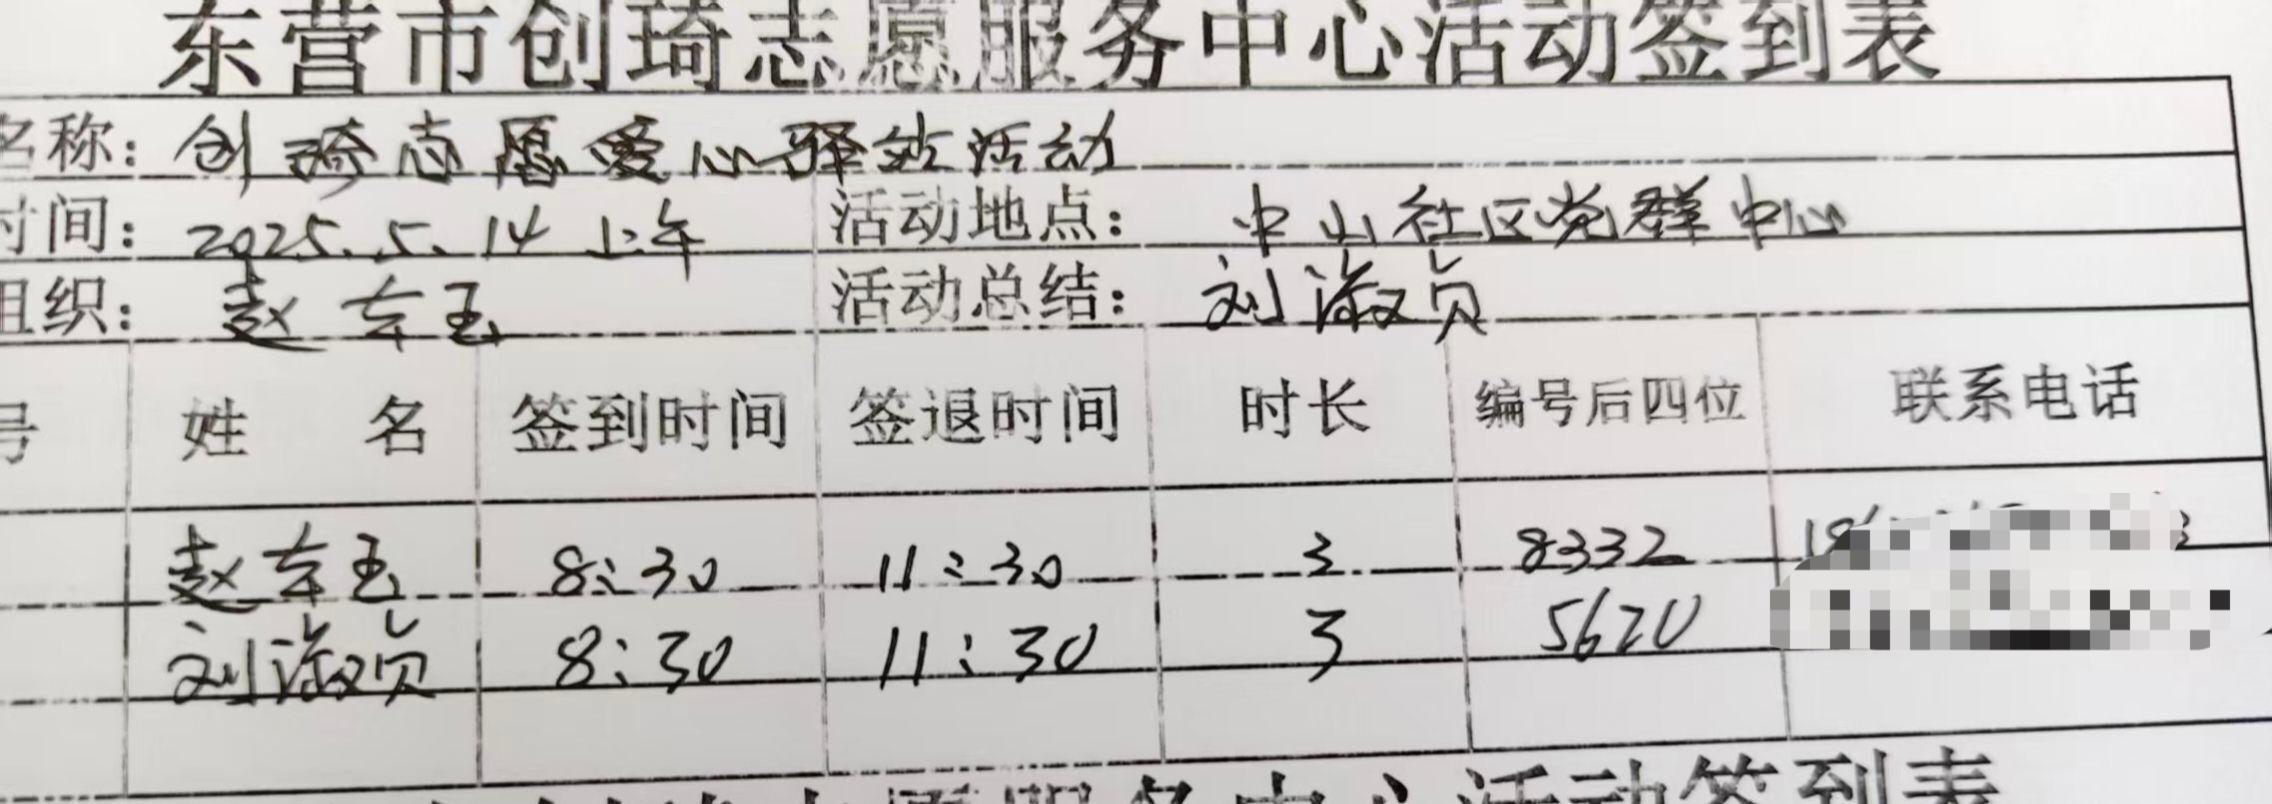 东营市创琦志愿服务中心活动签到表
名称：创琦志愿爱心驿站活动
时间：2025.5.14上午 活动地点：中山社区党群中心
组织：赵东玉 活动总结：刘淑贞
号 姓名 签到时间 签退时间 时长 编号后四位 联系电话
赵东玉 8:30 11:30 3 8332
刘淑贞 8:30 11:30 3 5620
服务中心活动签到表